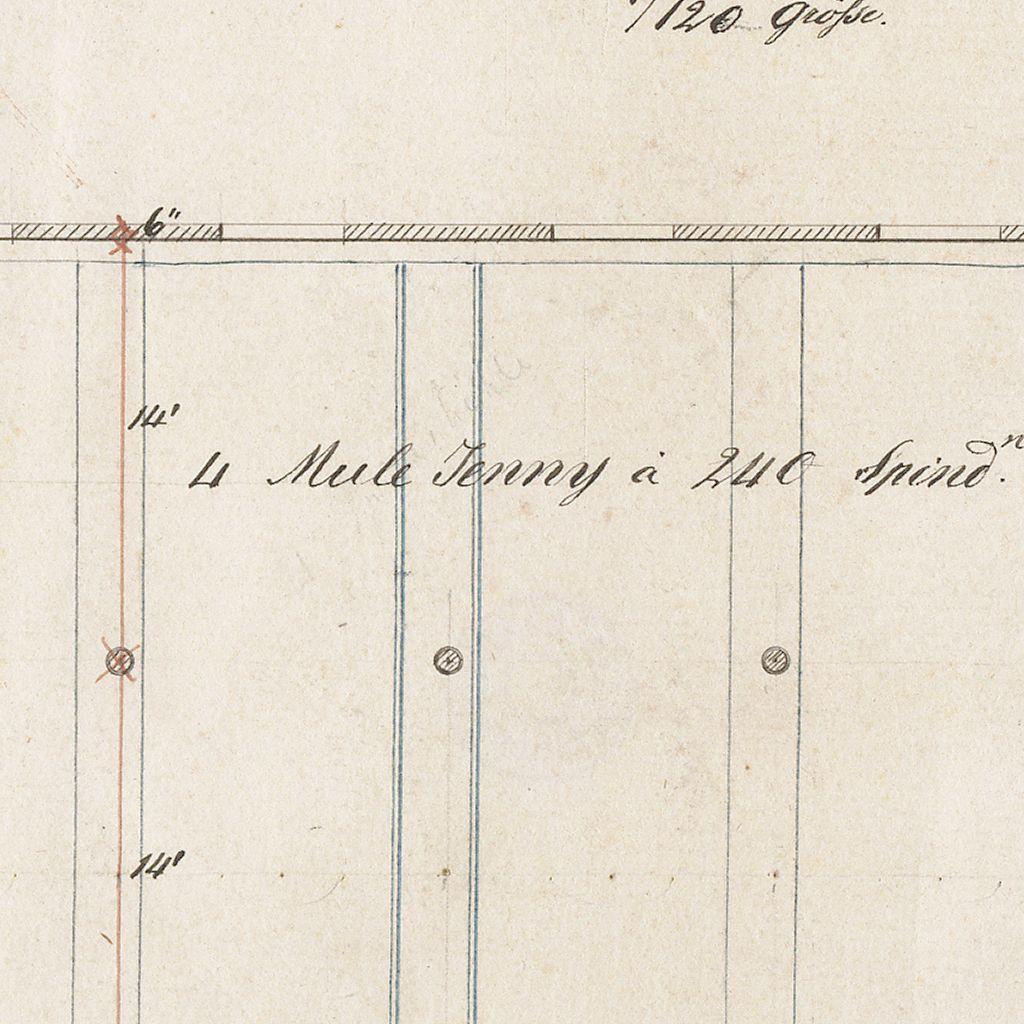 1/120 Grösse.
6"
14'
4 Mule Jenny à 240 Spind.n
14'